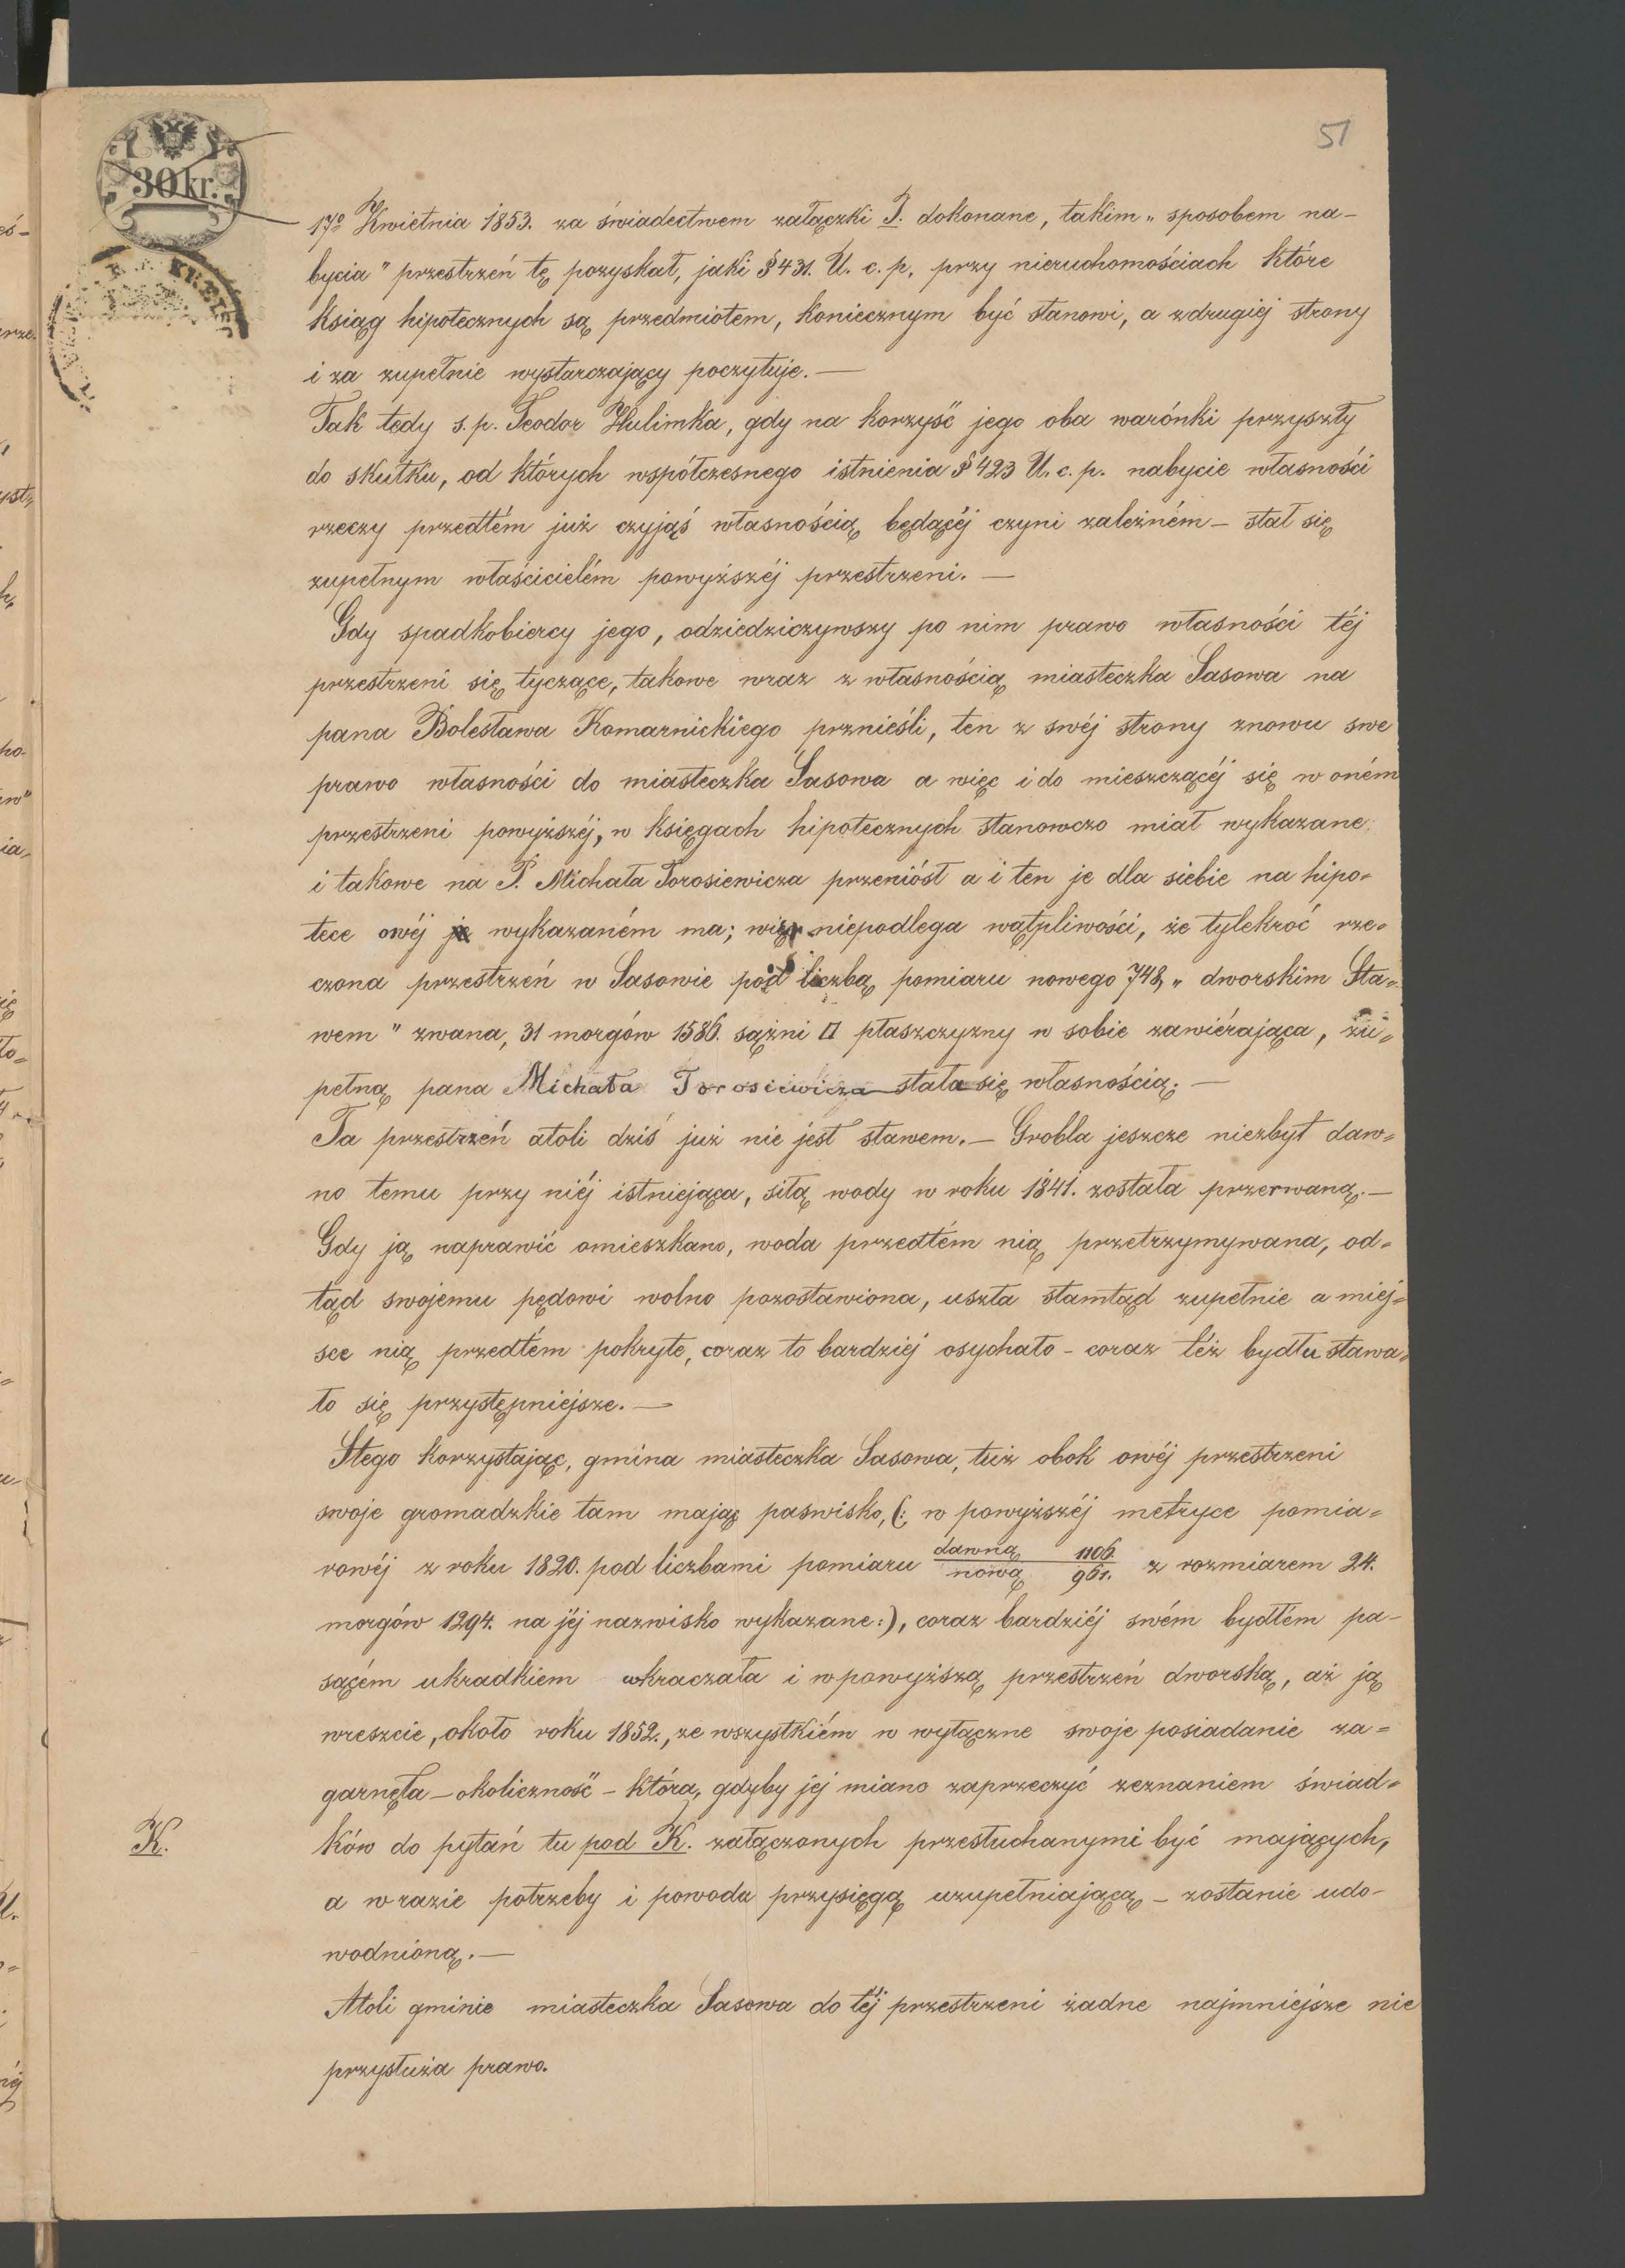 51
30 kr.
KREIS
17º Kwietnia 1853. za świadectwem załączki I. dokonane, takim „ sposobem na-
bycia" przestrzeń tę pozyskał, jaki § 431. U. c. p. przy nieruchomościach które
ksiąg hipotecznych są przedmiotem, koniecznym być stanowi, a zdrugiéj strony
i za zupełnie wystarczający poczytuje.—
Tak tedy s. p. Teodor Hulimka, gdy na korzyść jego oba warónki przyszły
do skutku, od których współczesnego istnienia § 423 U. c. p. nabycie własności
rzeczy przedtém już czyjąś własnością będącéj czyni zależném — stał się
zupełnym właścicielém powyższéj przestrzeni.—
Gdy spadkobiercy jego, odziedziczywszy po nim prawo własności téj
przestrzeni się tyczące, takowe wraz z własnością miasteczka Sasowa na
pana Bolesława Komarnickiego prznieśli, ten z swéj strony znowu swe
prawo własności do miasteczka Sasowa a więc i do mieszczącéj się w oném
przestrzeni powyższéj, w księgach hipotecznych stanowczo miał wykazane
i takowe na P. Michała Torosiewicza przeniósł a i ten je dla siebie na hipo=
tece owéj je wykazaném ma; więc niepodlega wątpliwości, że tylekroć rze=
czona przestrzeń w Sasowie pod liczbą pomiaru nowego 748, „ dworskim Sta=
wem" zwana, 31 morgów 1586. sążni □ płaszczyzny w sobie zawiérająca, zu=
pełną pana Michała Torosiewicza stała się własnością.—
Ta przestrzeń atoli dziś już nie jest stawem.— Grobla jeszcze niezbyt daw=
no temu przy niéj istniejąca, siłą wody w roku 1841. została przerwaną.—
Gdy ją naprawić omieszkano, woda przedtém nią przetrzymywana, od=
tąd swojemu pędowi wolno pozostawiona, uszła stamtąd zupełnie a miej=
sce nią przedtém pokryte, coraz to bardziéj osychało - coraz téż bydłu stawa=
ło się przystępniejsze.—
Stego korzystając, gmina miasteczka Sasowa, tuż obok owéj przestrzeni
swoje gromadzkie tam mając paswisko, (: w powyższéj metryce pomia=
rowéj z roku 1820. pod liczbami pomiaru dawną/nową 1106./961. z rozmiarem 24.
morgów 1294. na jéj nazwisko wykazane:), coraz bardziéj swém bydłém pa-
sącém ukradkiem wkraczała i wpowyższą przestrzeń dworską, aż ją
wreszcie, około roku 1852., ze wszystkiém w wyłączne swoje posiadanie za=
garnęła — okoliczność - która, gdyby jej miano zaprzeczyć zeznaniem świad=
K.
ków do pytań tu pod K. załączonych przesłuchanymi być mających,
a w razie potrzeby i powoda przysięgą uzupełniającą — zostanie udo-
wodnioną.—
Atoli gminie miasteczka Sasowa do téj przestrzeni żadne najmniejsze nie
przysłuża prawo.